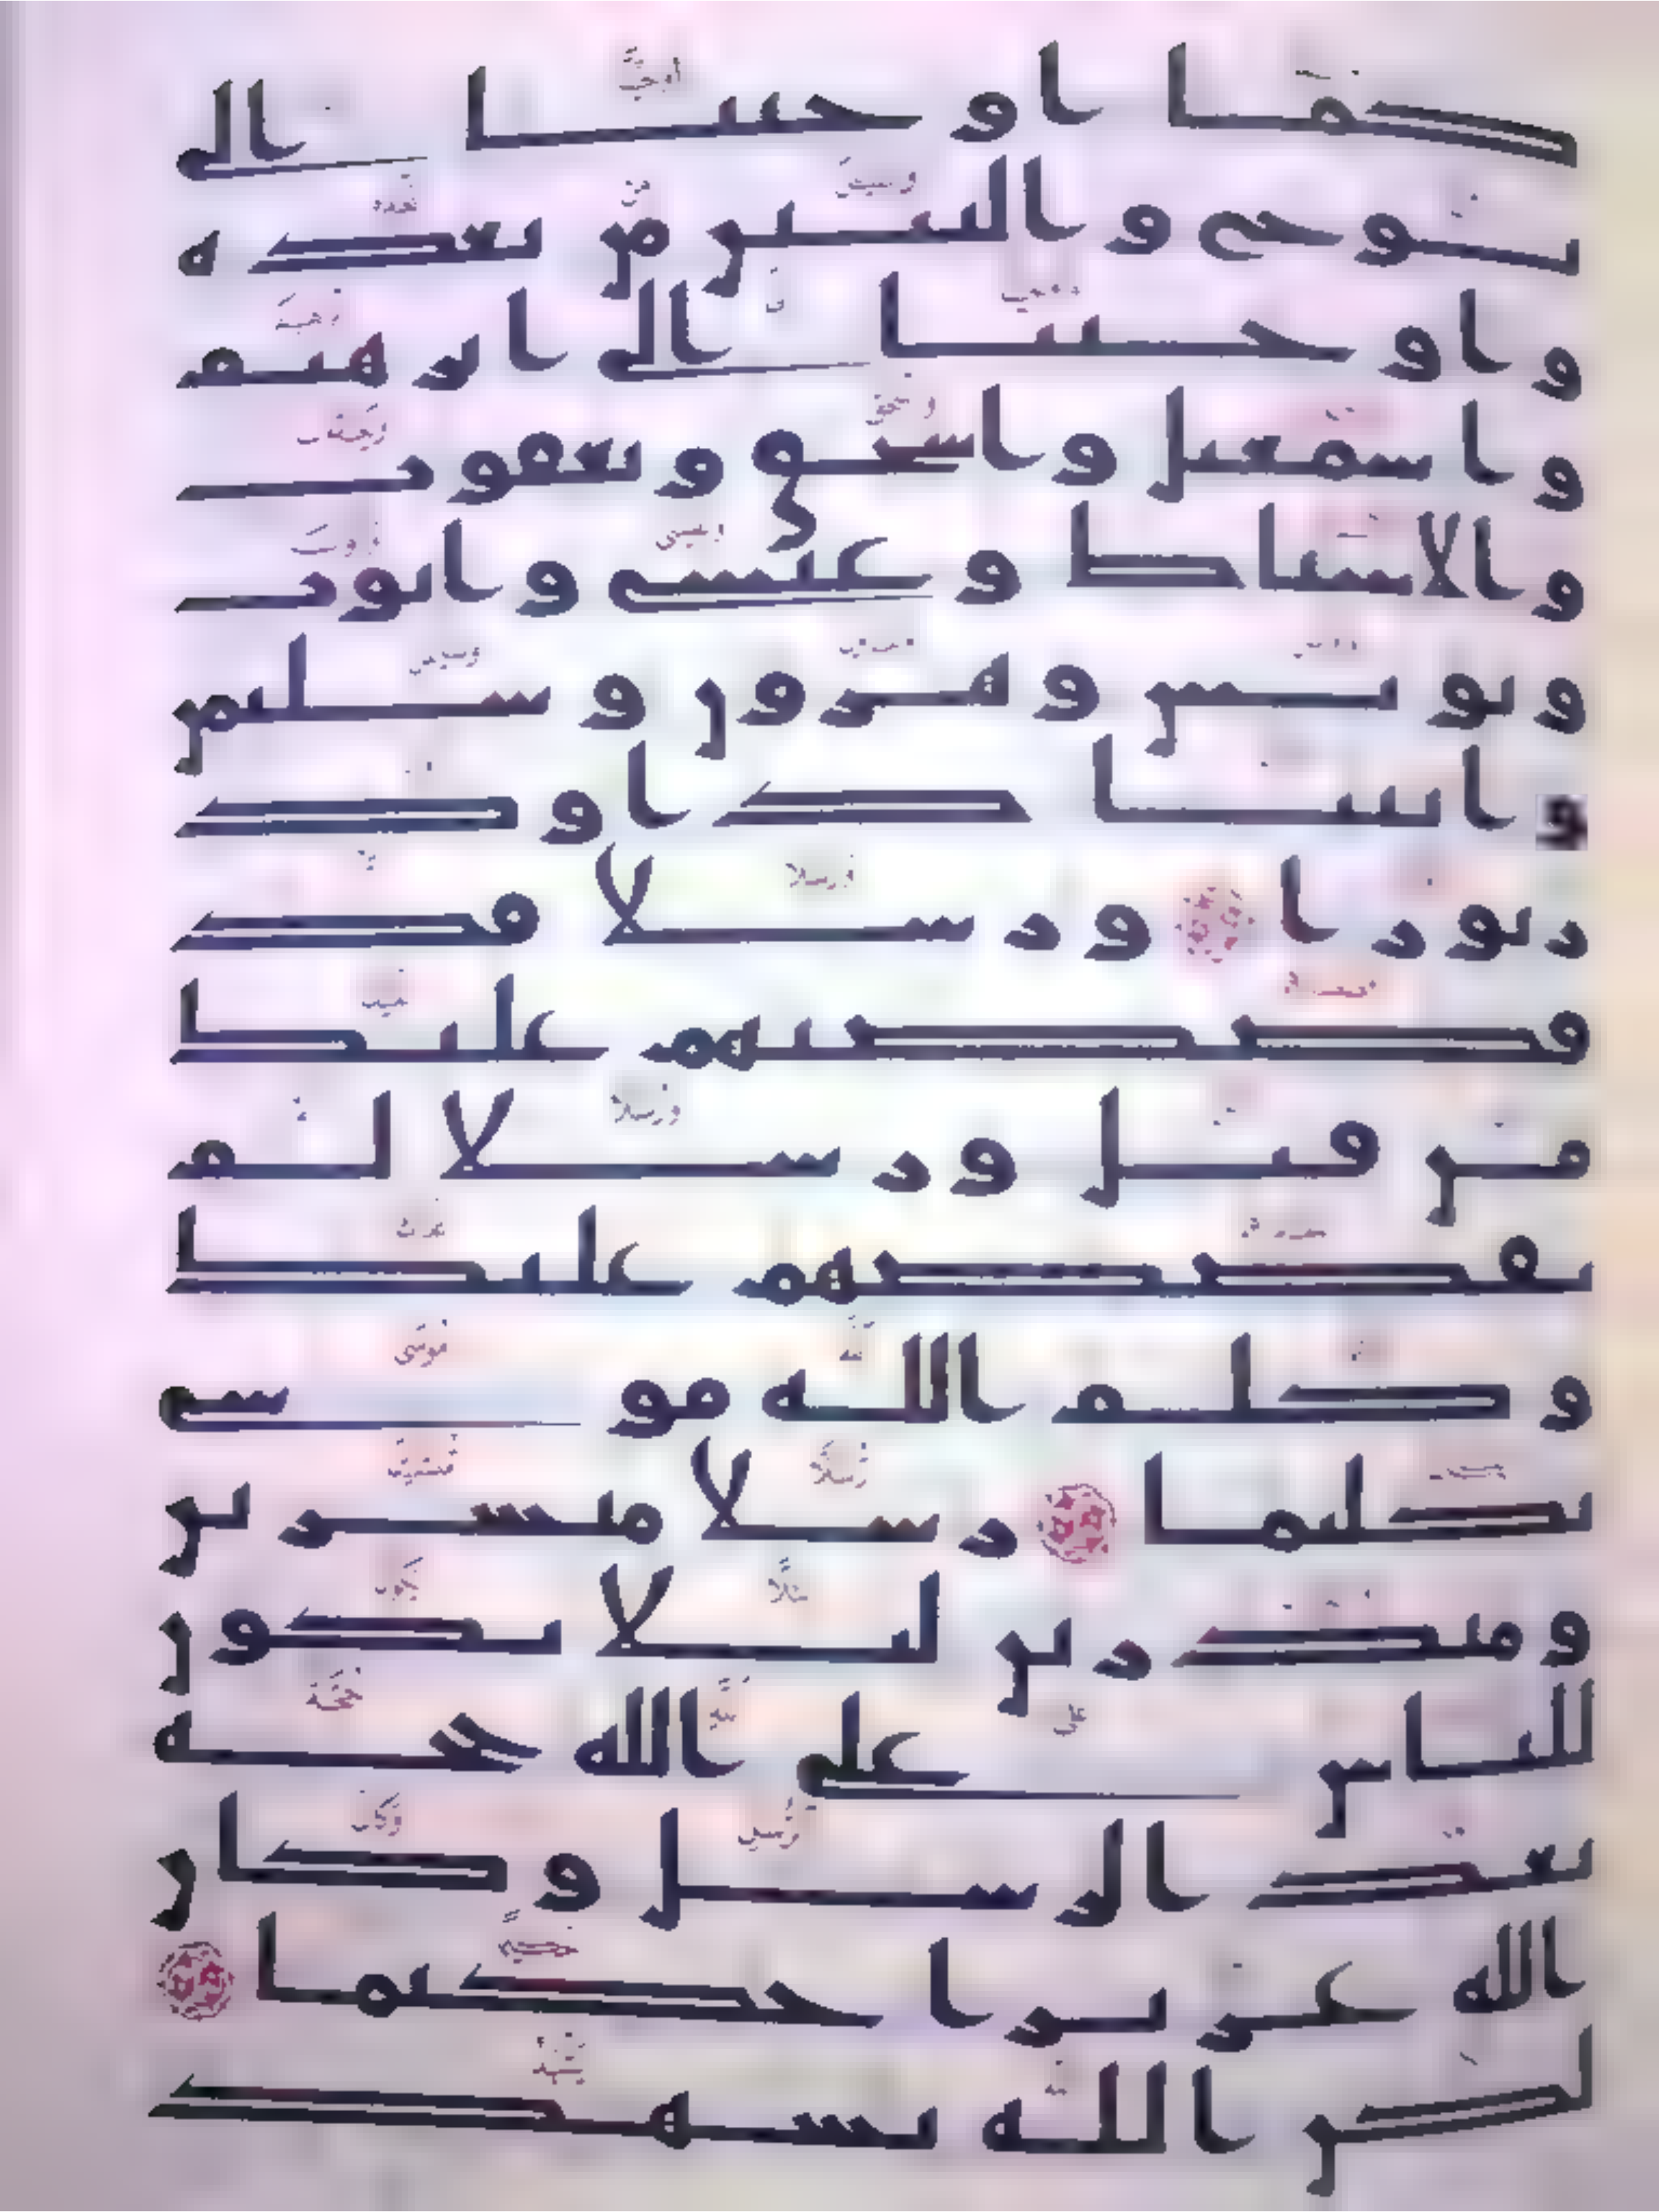 كما اوحينا الى
نوح والنبين من بعده
واوحينا الى ابرهيم
واسمعيل واسحق ويعقوب
والاسباط وعيسى وايوب
ويونس وهرون وسليمن
واتينا داود
زبورا ورسلا قد
قصصنهم عليك
من قبل ورسلا لم
نقصصهم عليك
وكلم الله موسى
تكليما رسلا مبشرين
ومنذرين ليلا يكون
للناس على الله حجه
بعد الرسل وكان
الله عزيزا حكيما
لكن الله يشهد